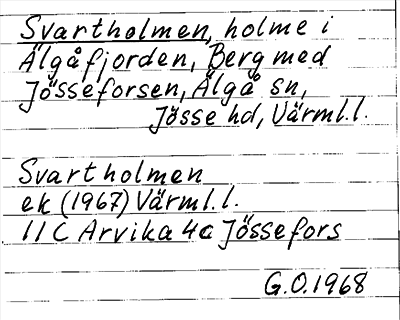 Svartholmen, holme i
Älgåfjorden, Berg med
Jösseforsen, Älgå sn,
Jösse hd, Värml.l.
Svartholmen
ek (1967) Värml.l.
11 C Arvika 4c Jössefors
G.O.1968